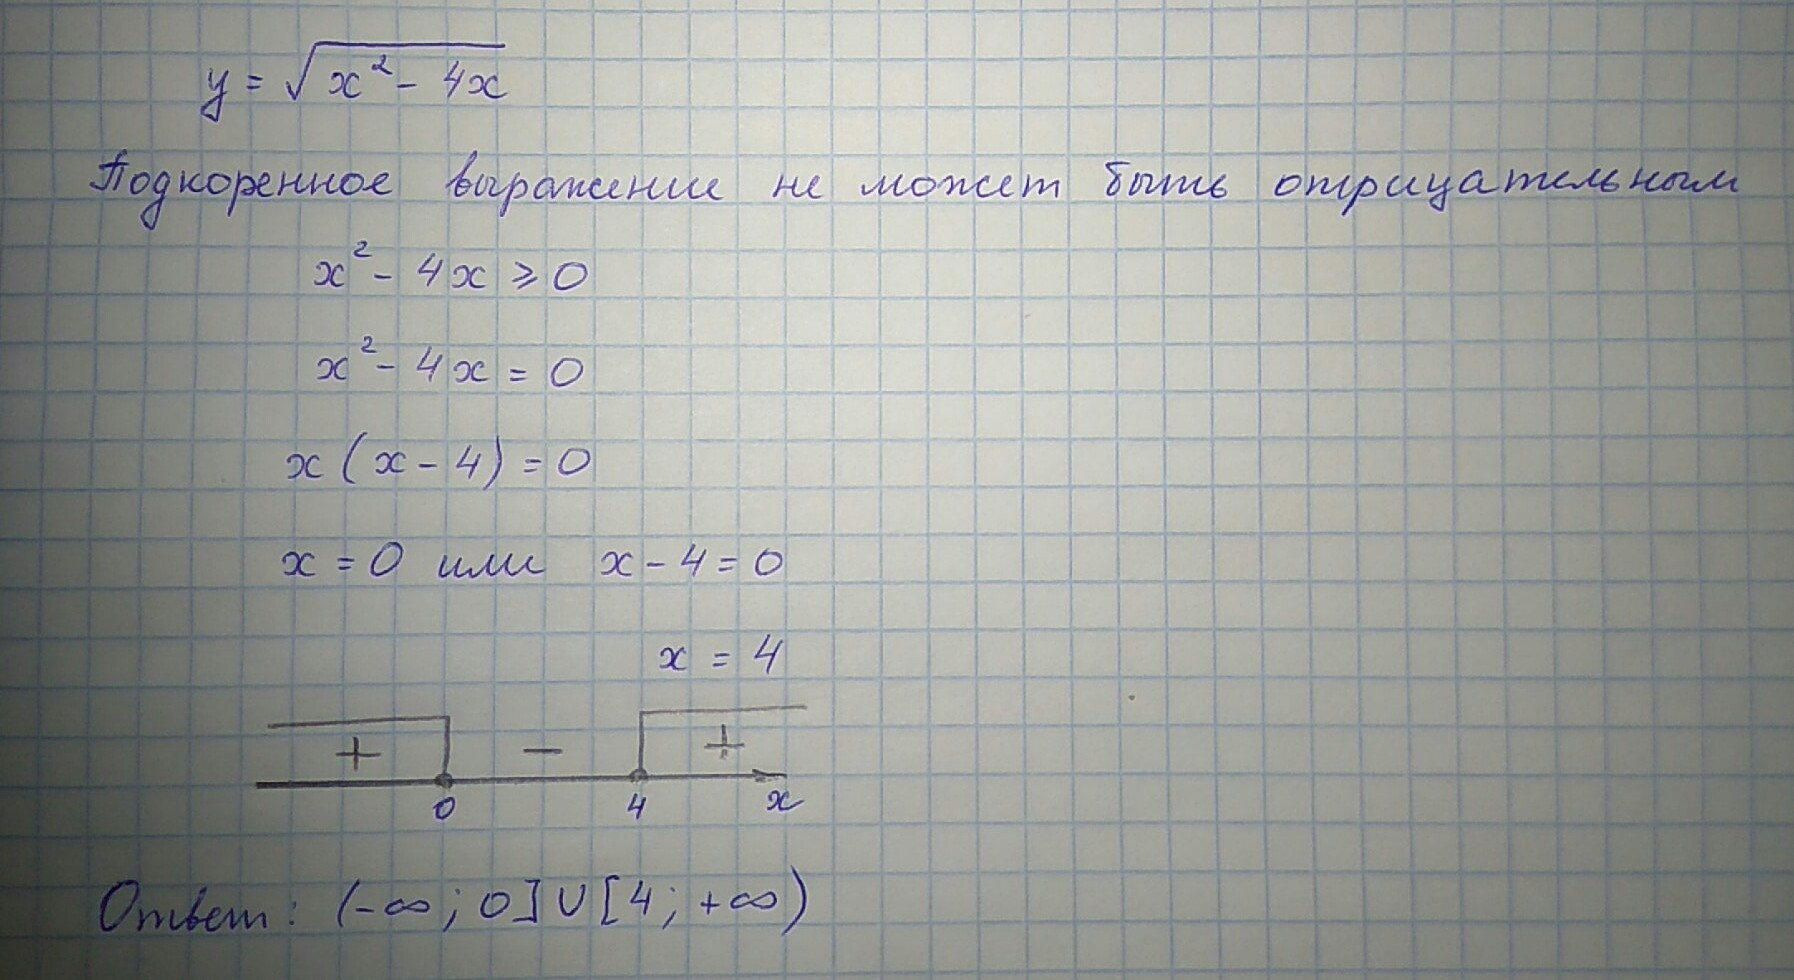 y = √(x² - 4x)
Подкоренное выражение не может быть отрицательным
x² - 4x ⩾ 0
x² - 4x = 0
x (x - 4) = 0
x = 0 или x - 4 = 0
x = 4
+ − +
0 4 x
Ответ: (-∞; 0] ∪ [4; +∞)